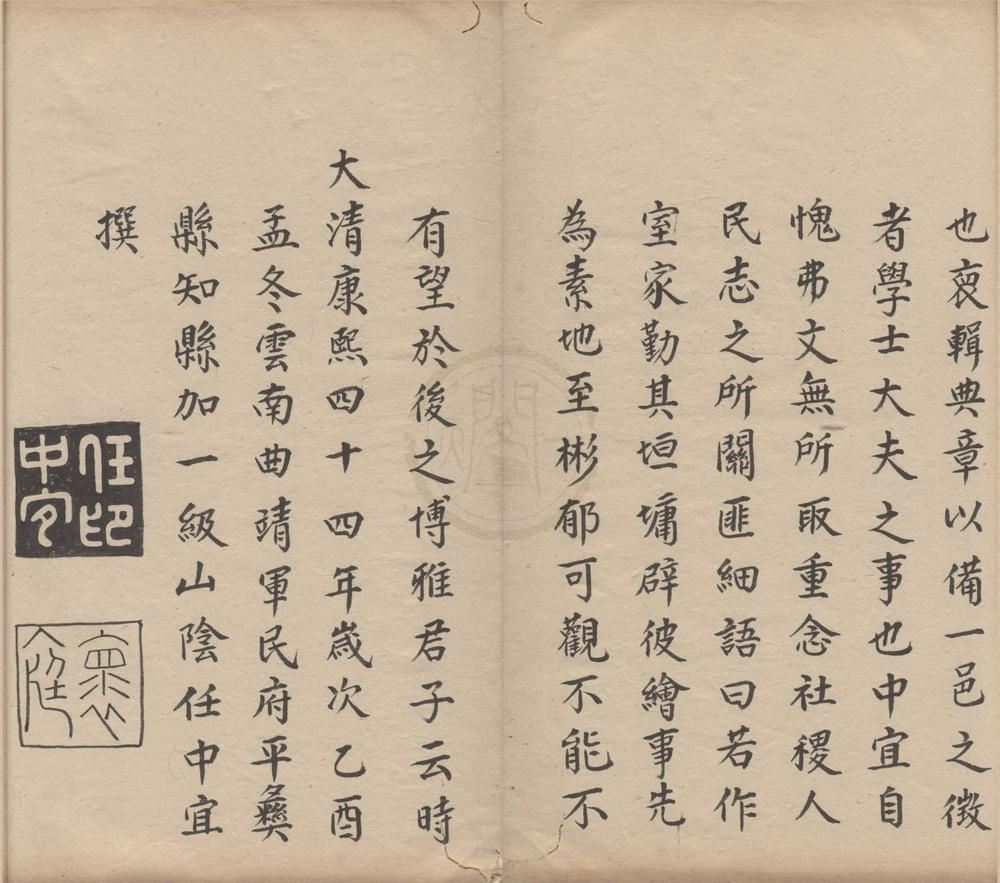 也裒輯典章以備一邑之徴
者學士大夫之事也中宜自
愧弗文無所取重念社稷人
民志之所關匪細語曰若作
室家勤其垣墉辟彼繪事先
為素地至彬郁可觀不能不
有望於後之博雅君子云時
大清康熙四十四年歲次乙酉
孟冬雲南曲靖軍民府平彝
縣知縣加一級山陰任中宜
撰
任印
中宜